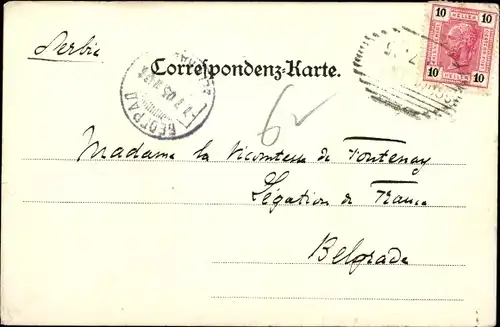 10 10
HELLER
10 10
Serbie
Correspondenz-Karte.
БЕОГРАД
62
Madame la Vicomtesse de Fontenay
Légation de France
Belgrade